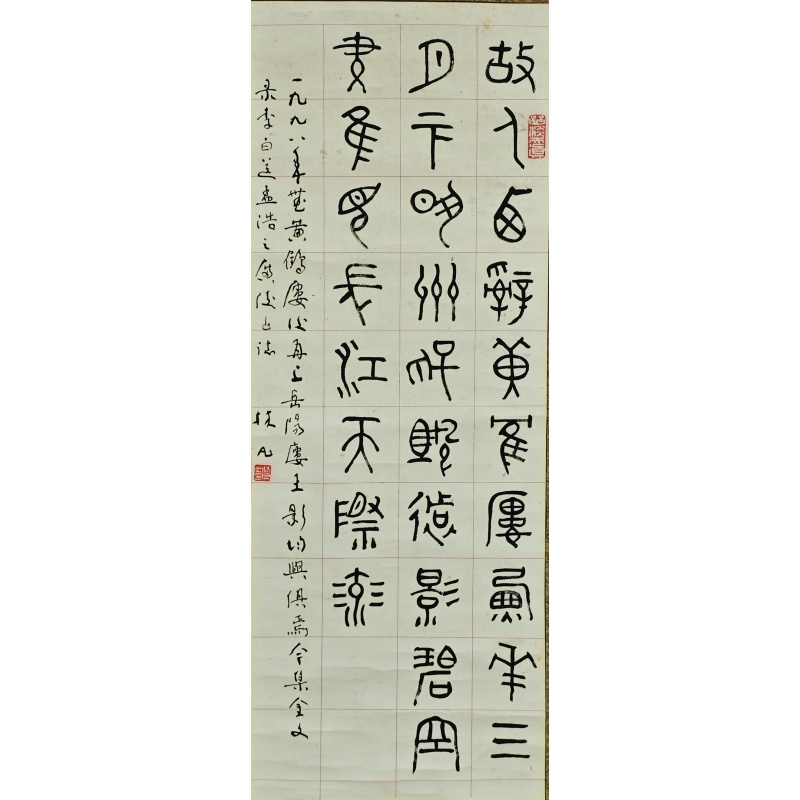 故人西辭黃鶴樓煙花三
月下揚州孤帆遠影碧空
盡隹見長江天際流
一九九八年登黃鶴樓後再上岳陽樓王影均與俱焉今集金文
录李白送孟浩之廣陵以誌
林凡